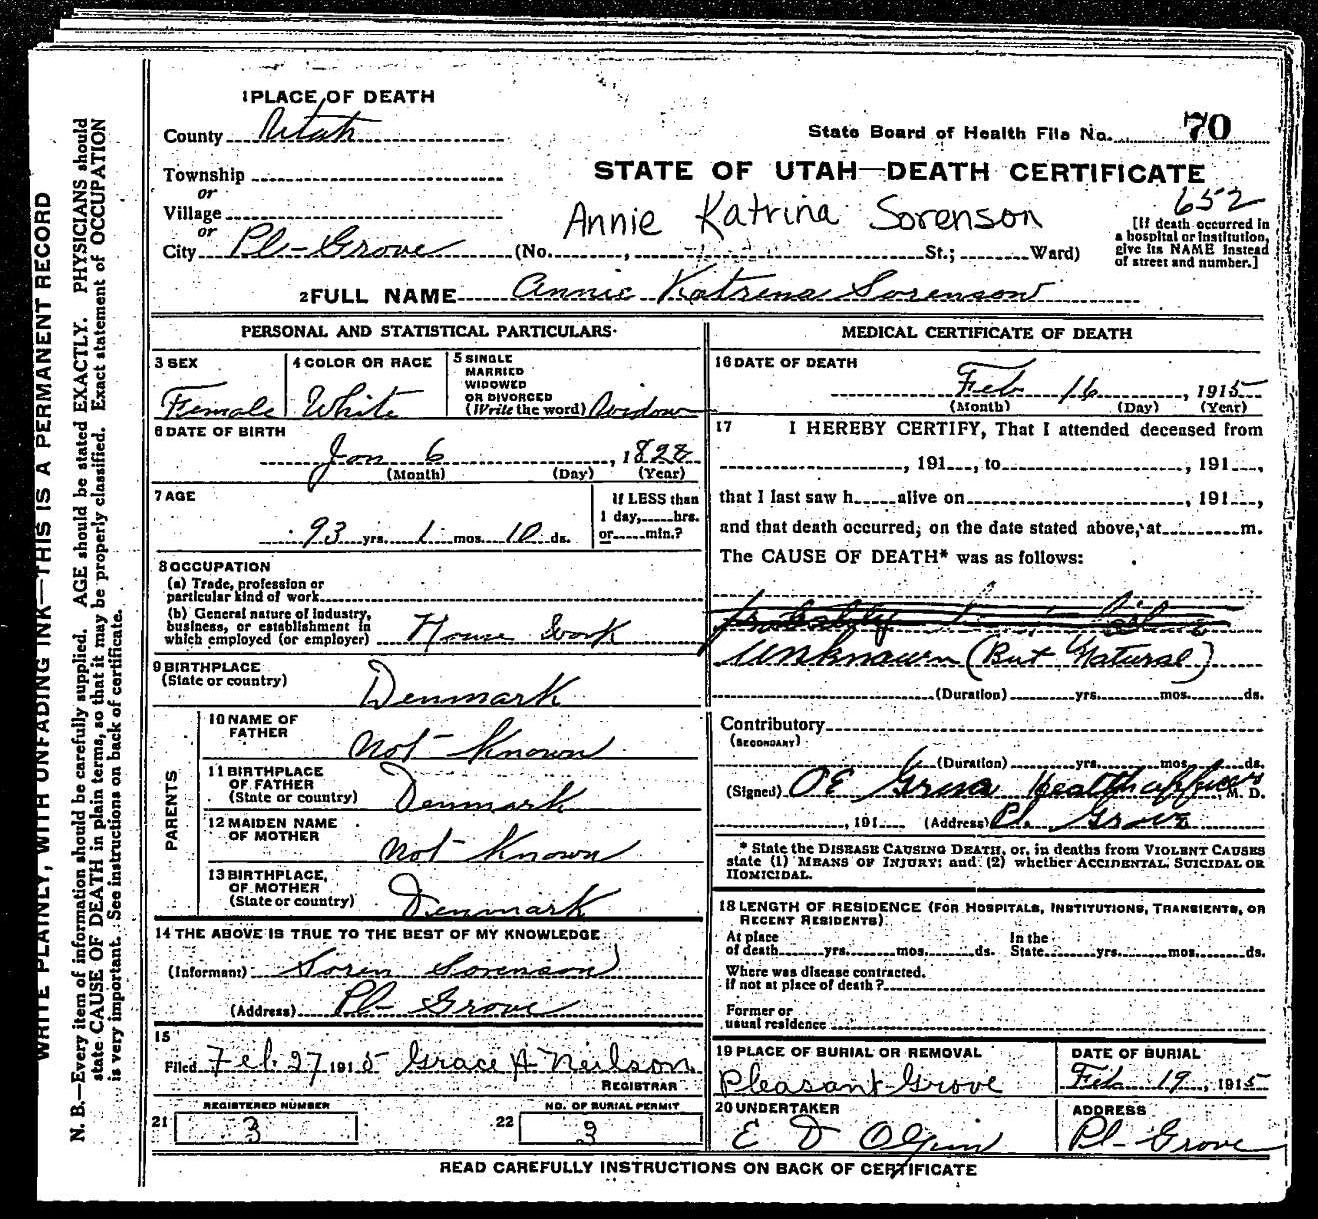 1 PLACE OF DEATH
County Utah
State Board of Health File No. 70
Township
STATE OF UTAH—DEATH CERTIFICATE
or
Village
Annie Katrina Sorenson
652
or
City Pl-Grove (No. , St.; Ward)
[If death occurred in
a hospital or institution,
give its NAME instead
of street and number.]
2 FULL NAME Annie Katrena Sorenson
PERSONAL AND STATISTICAL PARTICULARS
3 SEX
Female
4 COLOR OR RACE
White
5 SINGLE
MARRIED
WIDOWED
OR DIVORCED
(Write the word) Widow
6 DATE OF BIRTH
Jan 6, 182
(Month) (Day) (Year)
7 AGE
93 yrs. 1 mos. 10 ds.
If LESS than
1 day, hrs.
or min.?
8 OCCUPATION
(a) Trade, profession or
particular kind of work
(b) General nature of industry,
business, or establishment in
which employed (or employer) House Work
9 BIRTHPLACE
(State or country) Denmark
PARENTS
10 NAME OF
FATHER Not Known
11 BIRTHPLACE
OF FATHER
(State or country) Denmark
12 MAIDEN NAME
OF MOTHER Not Known
13 BIRTHPLACE,
OF MOTHER
(State or country) Denmark
14 THE ABOVE IS TRUE TO THE BEST OF MY KNOWLEDGE
(Informant) Soren Sorenson
(Address) Pl- Grove
15
Filed Feb. 27 1915 Grace A Neilson
REGISTRAR
REGISTERED NUMBER
21 3
NO. OF BURIAL PERMIT
22 3
MEDICAL CERTIFICATE OF DEATH
16 DATE OF DEATH
Feb 16, 1915
(Month) (Day) (Year)
17 I HEREBY CERTIFY, That I attended deceased from
, 191 , to , 191 ,
that I last saw h alive on , 191 ,
and that death occurred, on the date stated above, at m.
The CAUSE OF DEATH* was as follows:
probably
Unknawn (But Natural)
(Duration) yrs. mos. ds.
Contributory
(SECONDARY)
(Duration) yrs. mos. ds.
(Signed) OE Health officer, M. D.
, 191 (Address) Pl. Grove
* State the DISEASE CAUSING DEATH, or, in deaths from VIOLENT CAUSES
state (1) MEANS OF INJURY; and (2) whether ACCIDENTAL, SUICIDAL OR
HOMICIDAL.
18 LENGTH OF RESIDENCE (FOR HOSPITALS, INSTITUTIONS, TRANSIENTS, OR
RECENT RESIDENTS)
At place
of death yrs. mos. ds.
In the
State yrs. mos. ds.
Where was disease contracted.
if not at place of death?
Former or
usual residence
19 PLACE OF BURIAL OR REMOVAL
Pleasant Grove
DATE OF BURIAL
Feb 19, 1915
20 UNDERTAKER
E D
ADDRESS
Pl- Grove
READ CAREFULLY INSTRUCTIONS ON BACK OF CERTIFICATE
WRITE PLAINLY, WITH UNFADING INK—THIS IS A PERMANENT RECORD
N. B.—Every item of information should be carefully supplied. AGE should be stated EXACTLY. PHYSICIANS should
state CAUSE OF DEATH in plain terms, so that it may be properly classified. Exact statement of OCCUPATION
is very important. See instructions on back of certificate.